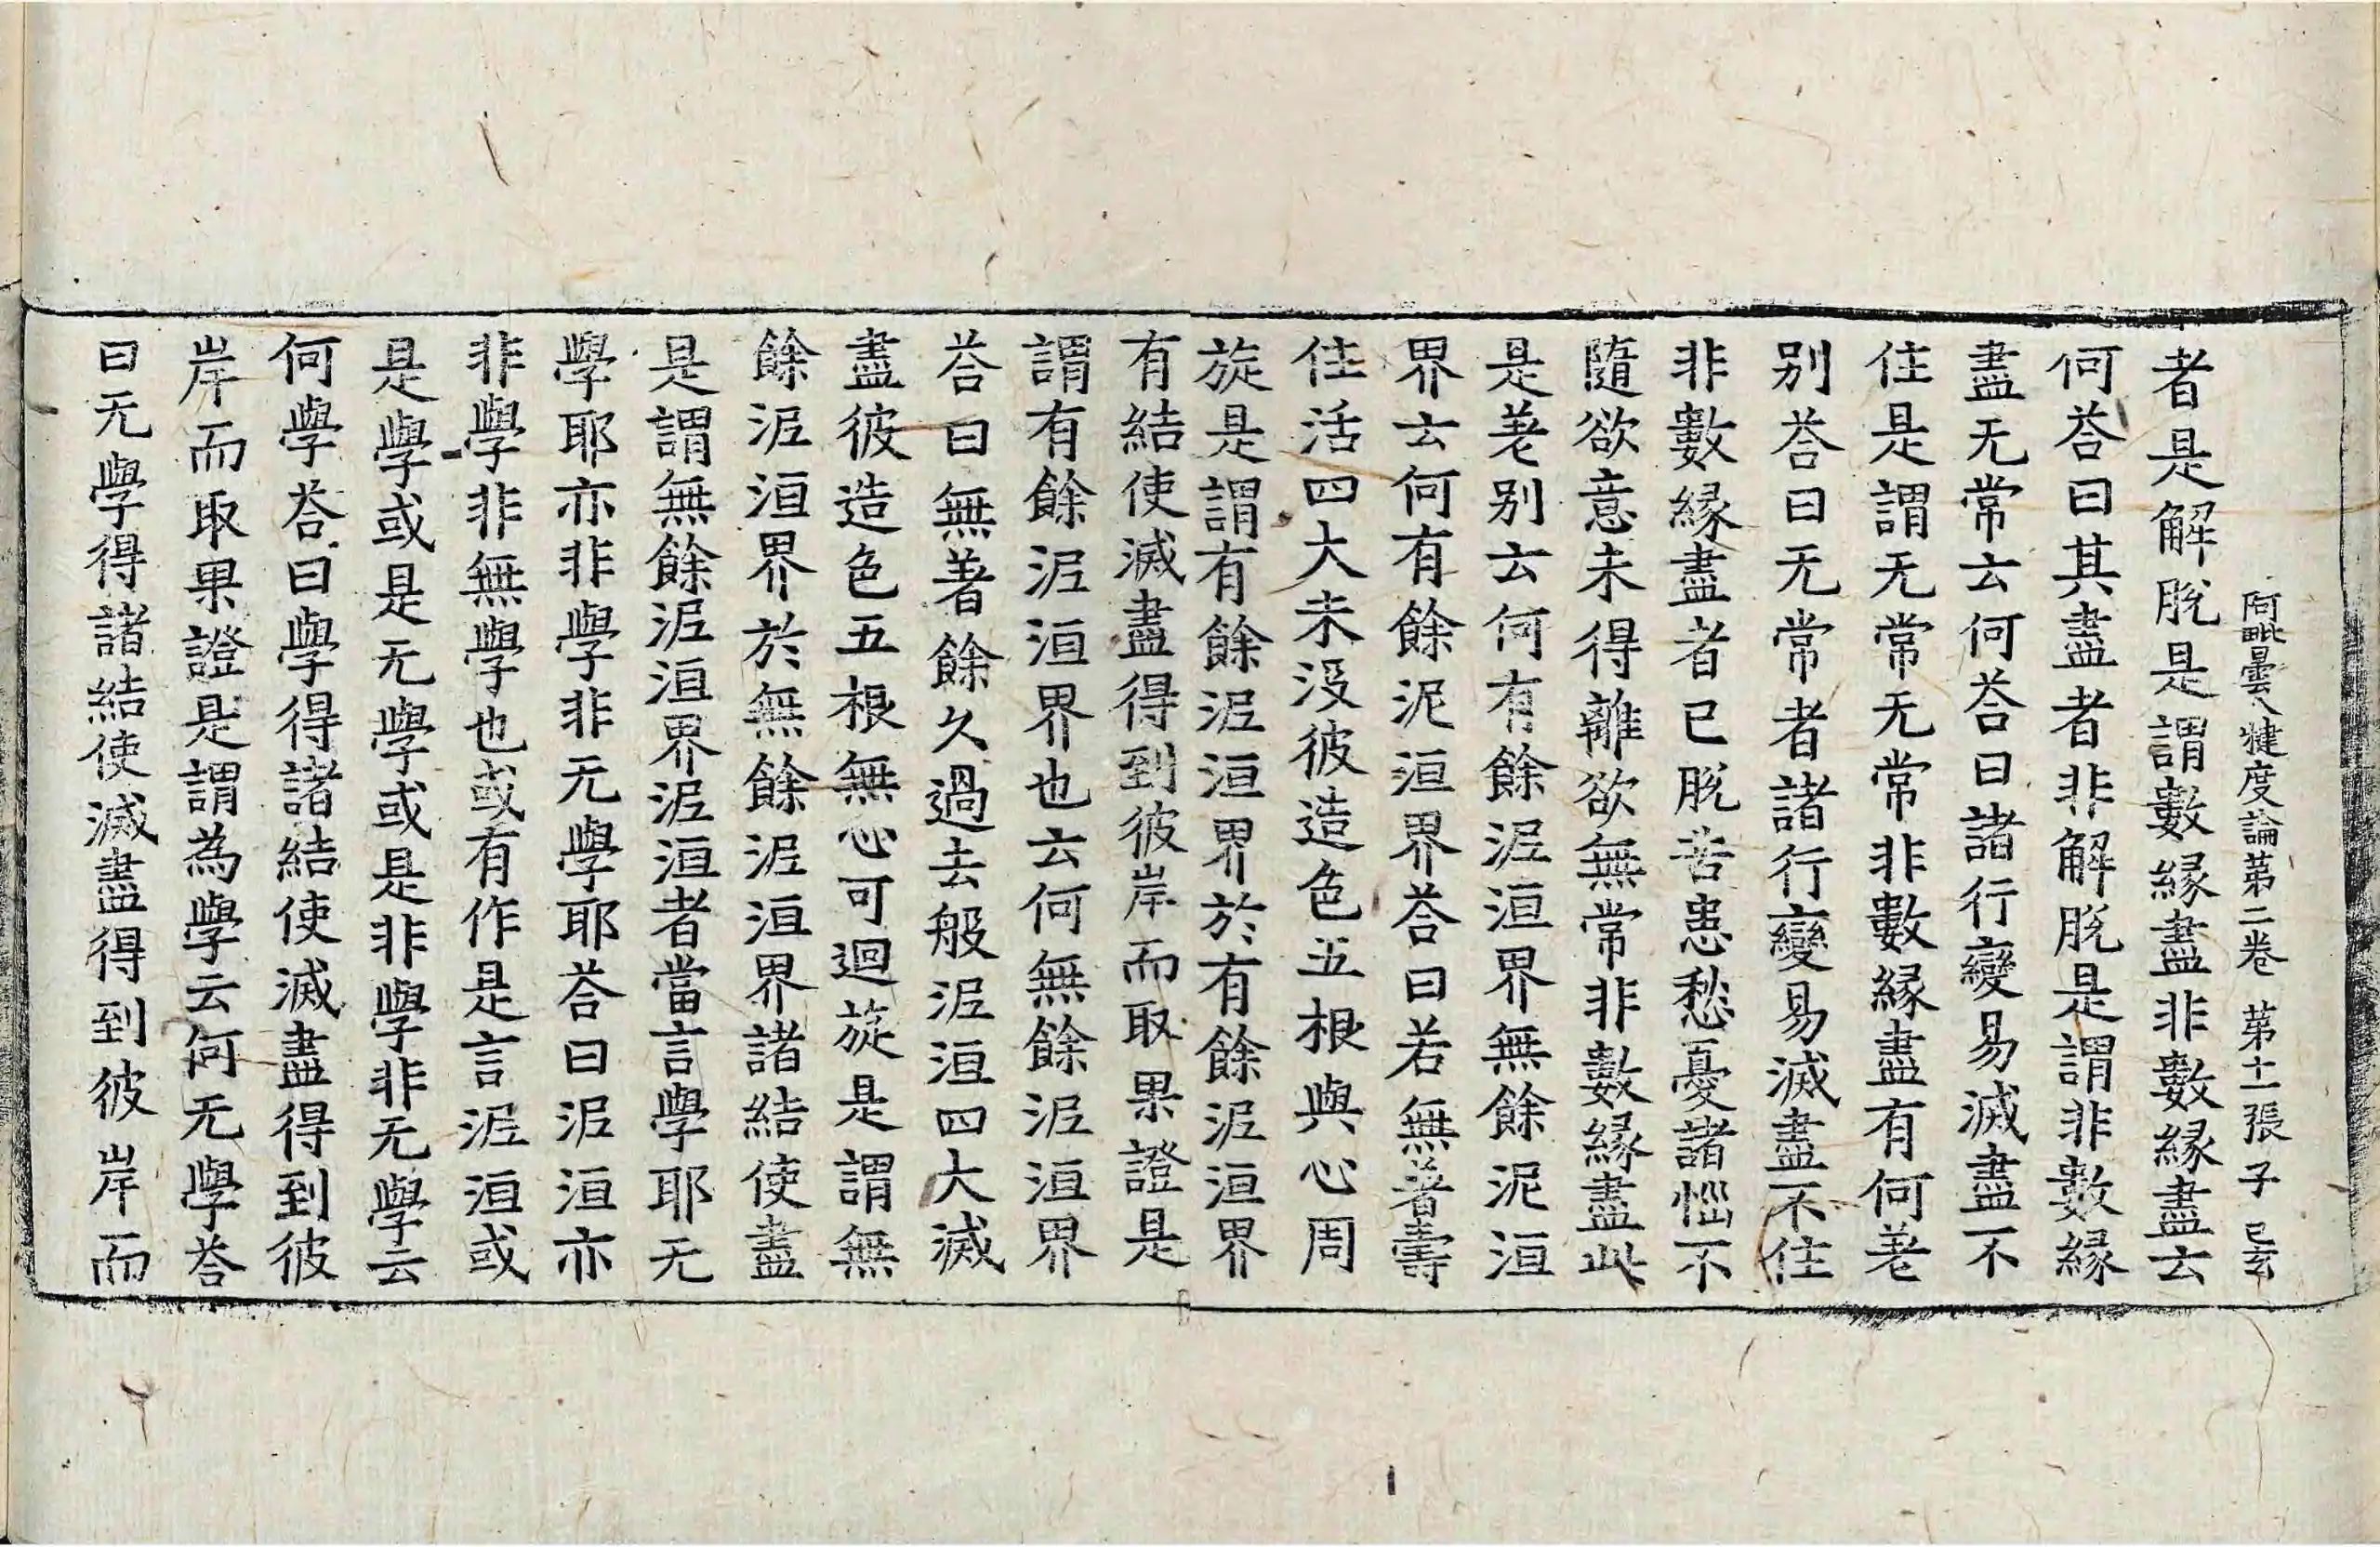 阿毗曇八犍度論苐二卷 苐十一張 子 已玄
者是解脫是謂數緣盡非數緣盡云
何荅曰其盡者非解脫是謂非數緣
盡无常云何荅曰諸行變易滅盡不
住是謂无常无常非數緣盡有何差
别荅曰无常者諸行變易滅盡不住
非數緣盡者已脫苦患愁憂諸惱不
隨欲意未得離欲無常非數緣盡此
是差别云何有餘泥洹界無餘泥洹
界云何有餘泥洹界荅曰若無著壽
住活四大未沒彼造色五根與心周
旋是謂有餘泥洹界於有餘泥洹界
有結使滅盡得到彼岸而取果證是
謂有餘泥洹界也云何無餘泥洹界
荅曰無著餘久過去般泥洹四大滅
盡彼造色五根無心可迴旋是謂無
餘泥洹界於無餘泥洹界諸結使盡
是謂無餘泥洹界泥洹者當言學耶无
學耶亦非學非无學耶荅曰泥洹亦
非學非無學也或有作是言泥洹或
是學或是无學或是非學非无學云
何學荅曰學得諸結使滅盡得到彼
岸而取果證是謂為學云何无學荅
曰无學得諸結使滅盡得到彼岸而